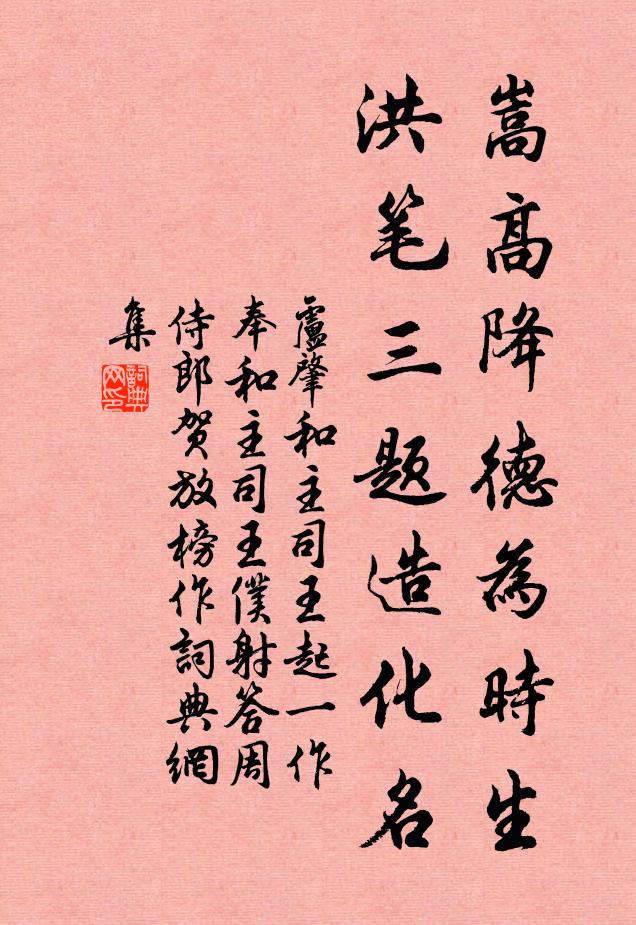 嵩高降德為時生
洪笔三题造化名
盧肇和主司王起一作
奉和主司王僕射答周
侍郎贺放榜作詞典網
集
詞典网印